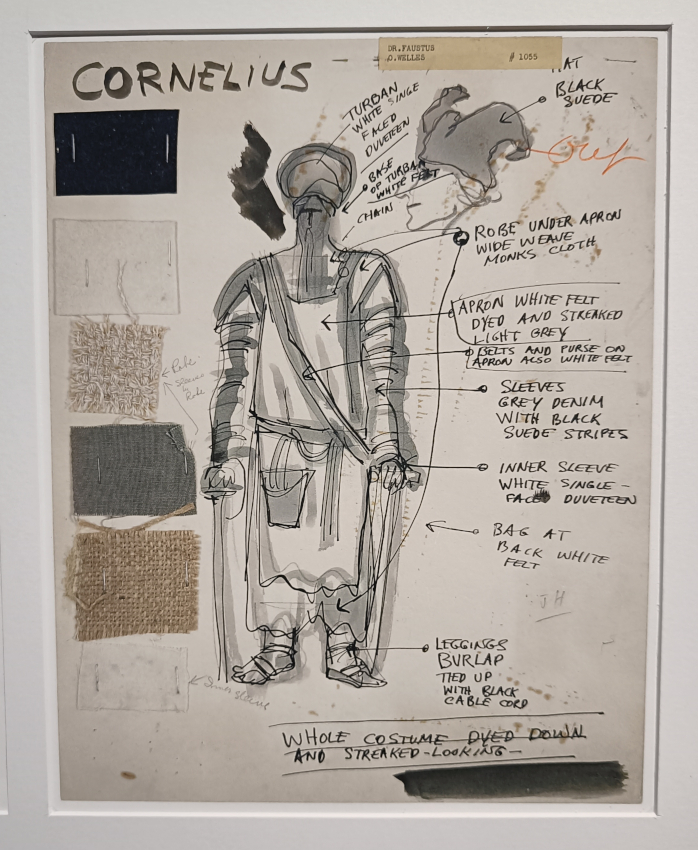 DR.FAUSTUS
O.WELLES # 1055
CORNELIUS
TURBAN
WHITE SINGE
FACED
DUVETEEN
BASE
OF TURBAN
WHITE FELT
CHAIN
HAT
BLACK
SUEDE
ROBE UNDER APRON
WIDE WEAVE
MONKS CLOTH
APRON WHITE FELT
DYED AND STREAKED
LIGHT GREY
BELTS AND PURSE ON
APRON ALSO WHITE FELT
SLEEVES
GREY DENIM
WITH BLACK
SUEDE STRIPES
INNER SLEEVE
WHITE SINGLE-
FACED DUVETEEN
BAG AT
BACK WHITE
FELT
JH
LEGGINGS
BURLAP
TIED UP
WITH BLACK
CABLE CORD
Robe
Robe
WHOLE COSTUME DYED DOWN
AND STREAKED-LOOKING-